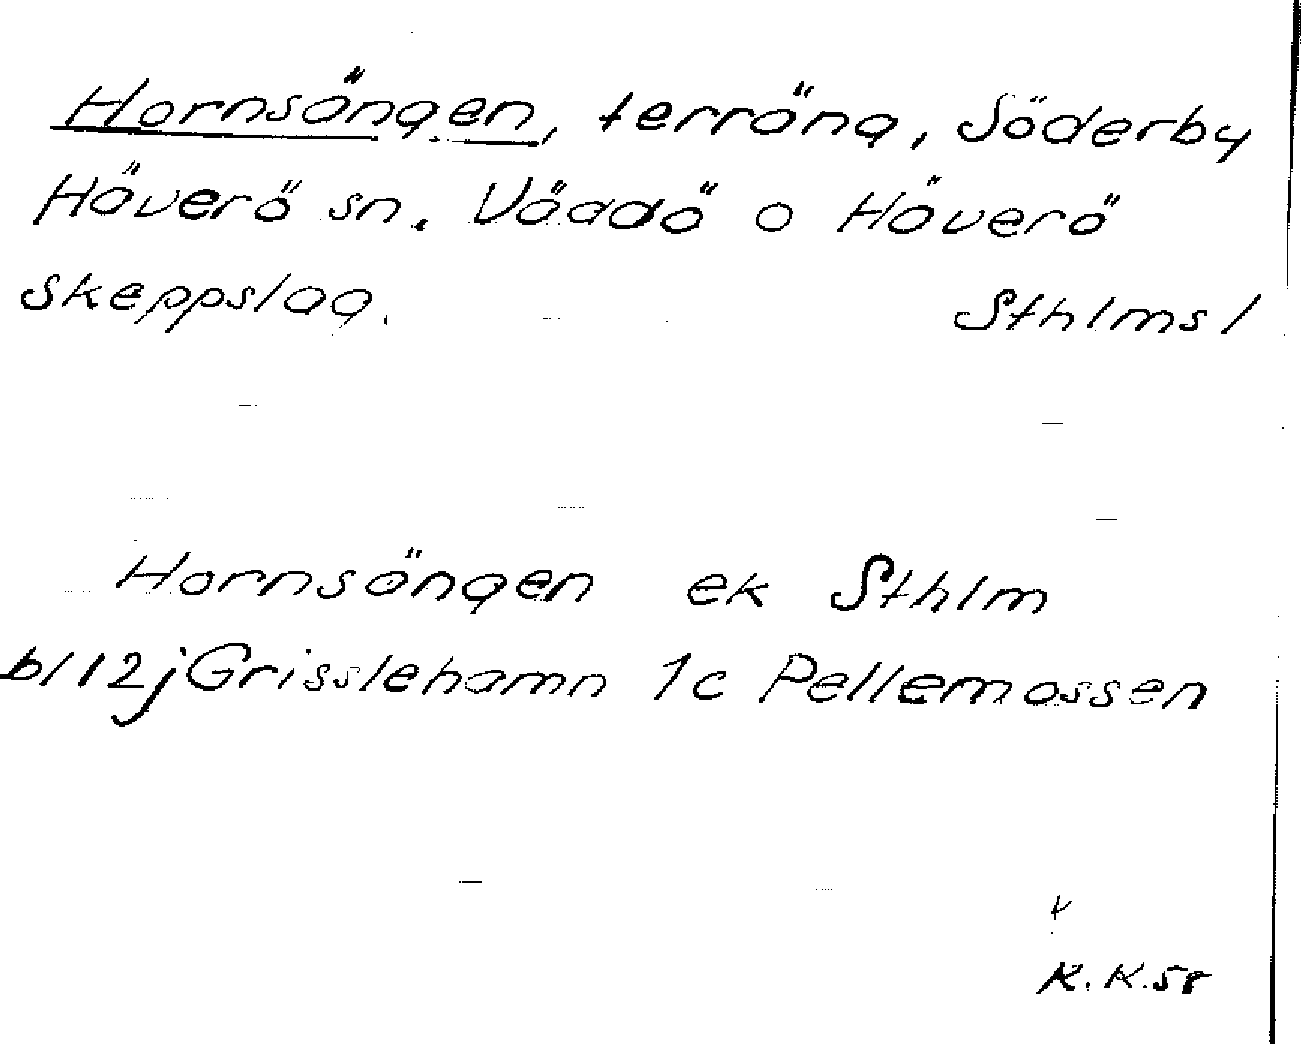 Hornsängen, terräng, Söderby
Häverö sn. Väddö o Häverö
skeppslag. Sthlms l
Hornsängen ek Sthlm
bl 12j Grisslehamn 1c Pellemossen
v
K.K.58